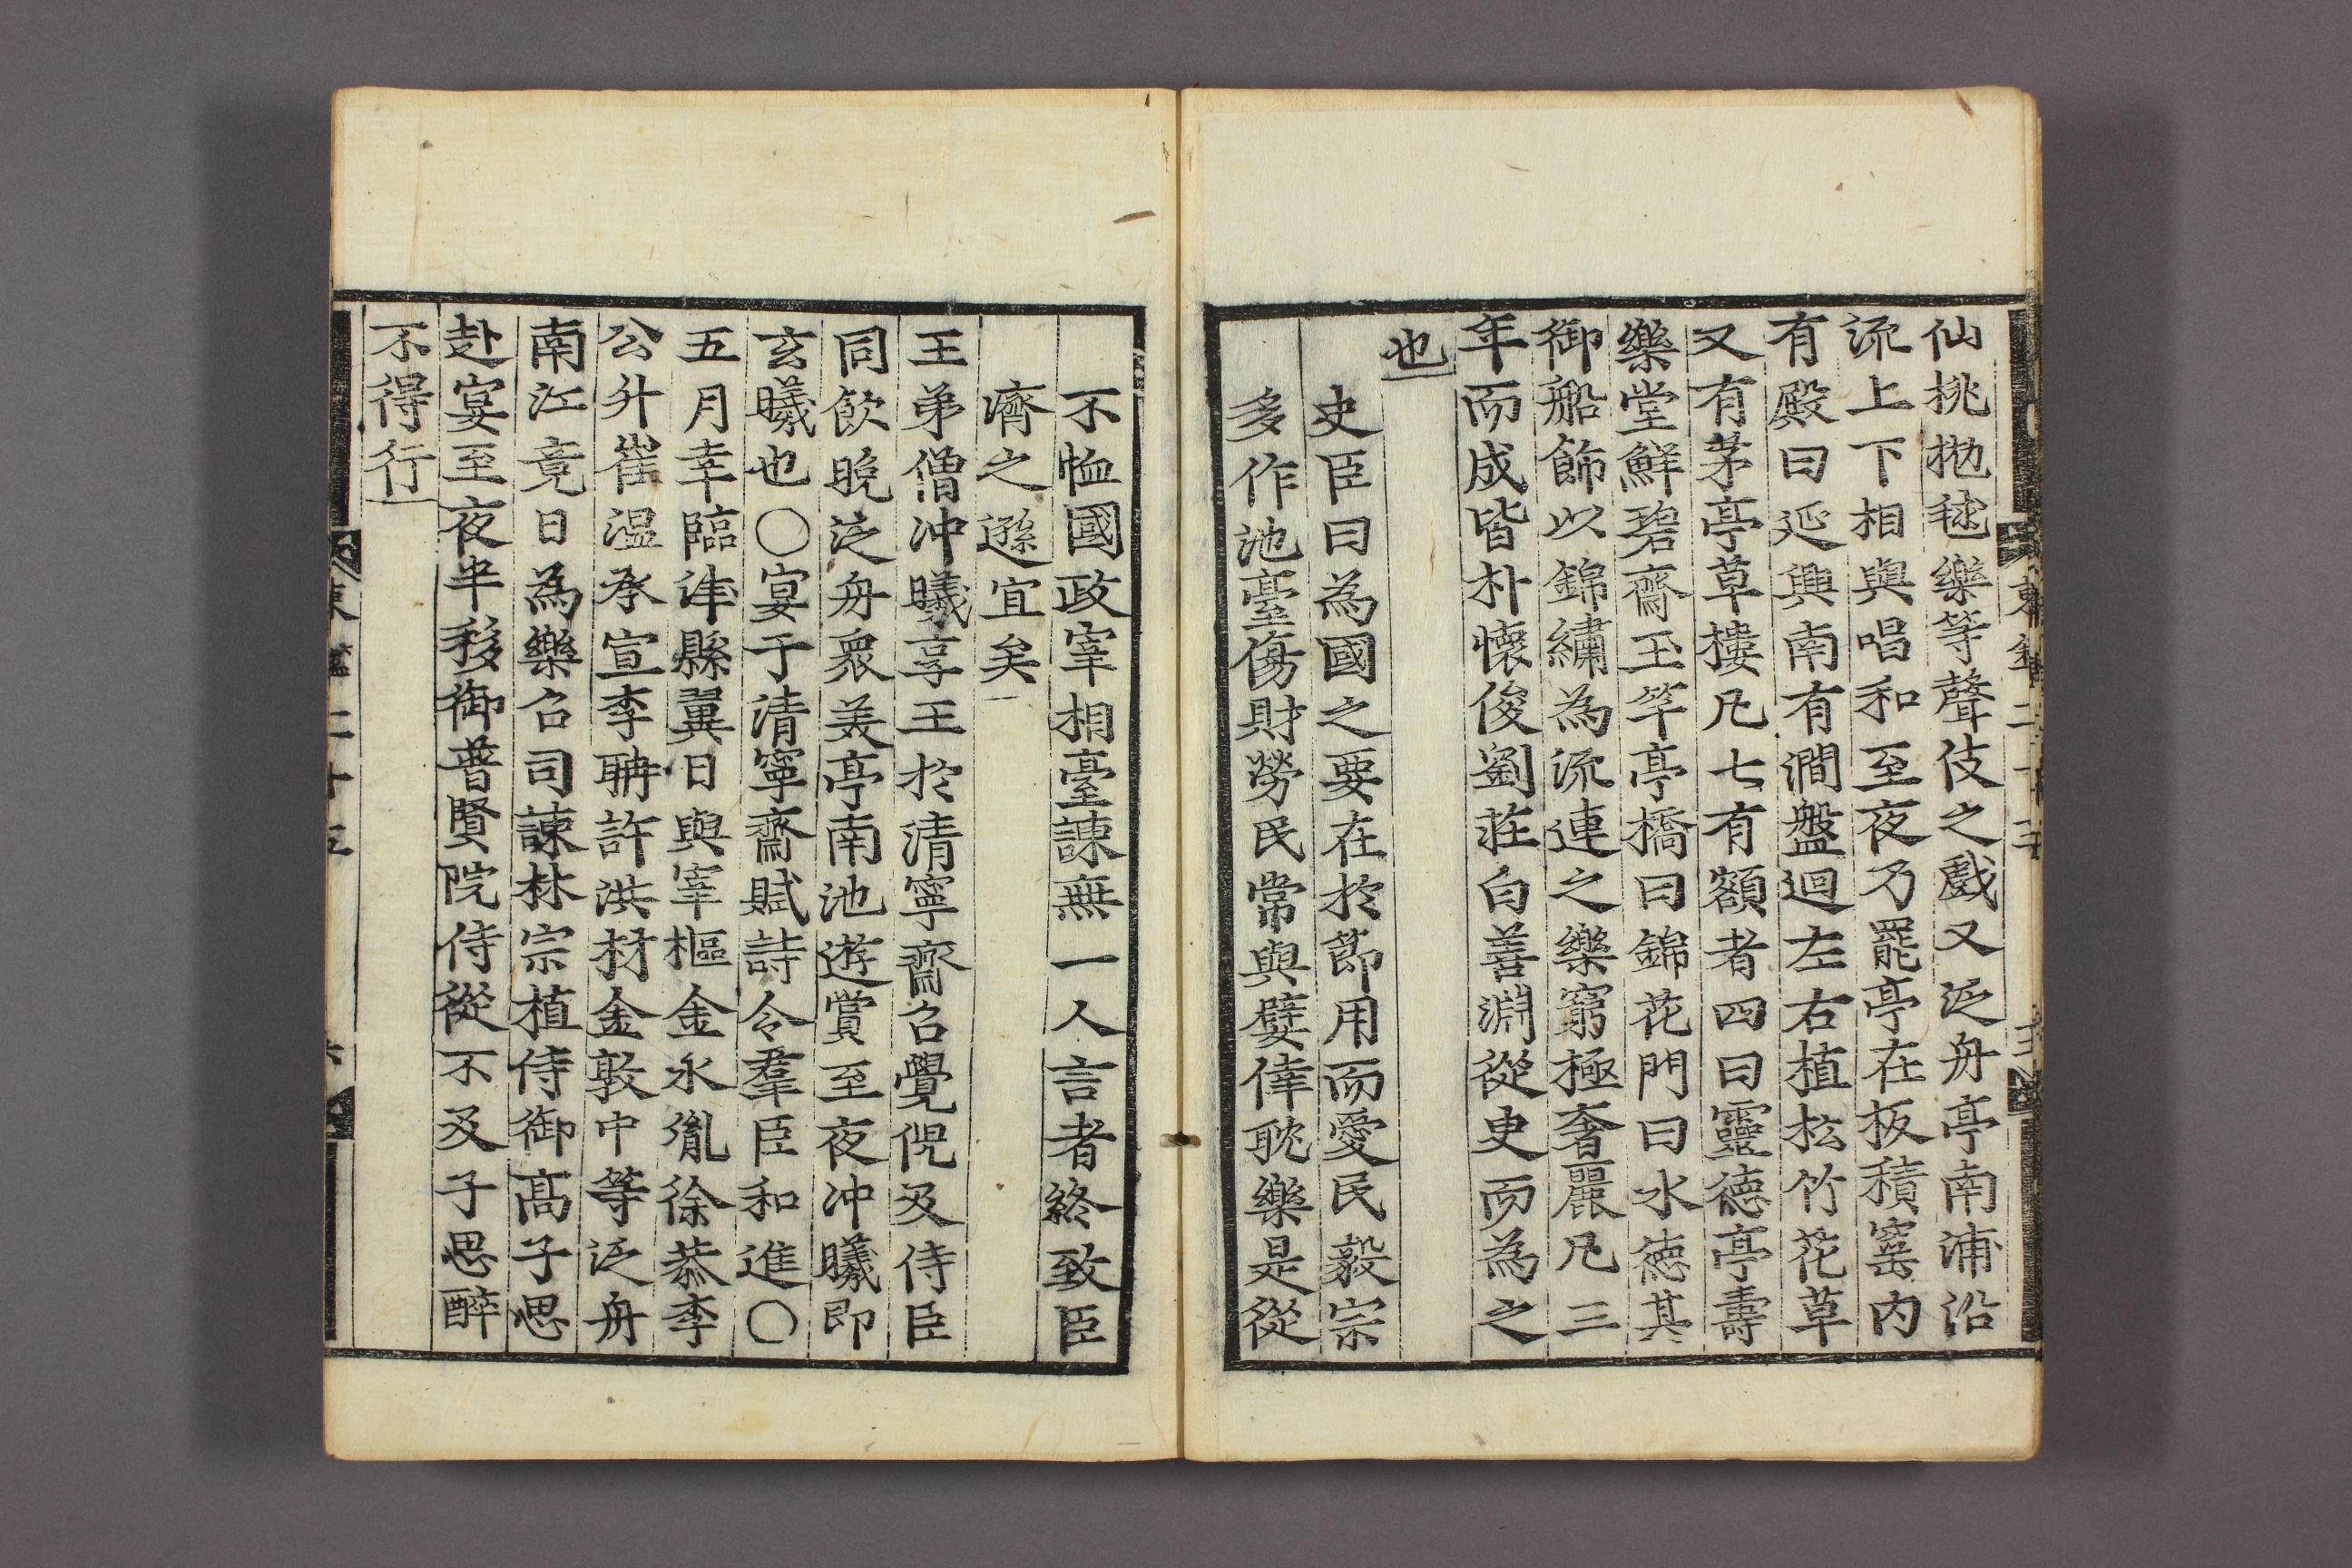 仙桃抛毬樂等聲伎之戱又泛舟亭南浦沿
流上下相與唱和至夜乃罷亭在板積窰内
有殿曰延興南有澗盤迴左右植松竹花草
又有茅亭草樓凡七有額者四曰靈德亭壽
樂堂鮮碧齋玉竿亭橋曰錦花門曰水德其
御船飾以錦繡為流連之樂窮極奢麗凡三
年而成皆朴懷俊劉莊白善淵從㕜而為之
也
史臣曰為國之要在於節用而愛民毅宗
多作池臺傷財勞民常與嬖倖耽樂是從
不恤國政宰相臺諫無一人言者終致臣
濟之遜宜矣
王弟僧冲曦享王於清寧齋召覺倪及侍臣
同飮晩泛舟衆美亭南池遊賞至夜冲曦即
玄曦也○宴于清寧齋賦詩令羣臣和進○
五月幸臨津縣翼日與宰樞金永胤徐恭李
公升崔溫承宣李聃許洪材金敦中等泛舟
南江竟日為樂召司諫林宗植侍御髙子思
赴宴至夜半移御普賢院侍從不及子思醉
不得行